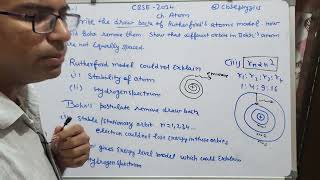 CBSE-2024
@Cbsephysics
ch Atom
Write the draw back of Rutherford's atomic model. how
did Bohr remove them. Show that different orbits in Bohr's atom
are not equally spaced.
Rutherford model could not Explain
(i) Stability of atom
(ii) Hydrogen spectrum
Bohr's postulate remove draw back
(i) stable/stationary orbit n=1,2,3,4...
electron could not lose energy in these orbits
gives Energy level model which could Explain
Hydrogen spectrum
(iii) r ∝ n²
r₁ : r₂ : r₃ : r₄
1 : 4 : 9 : 16